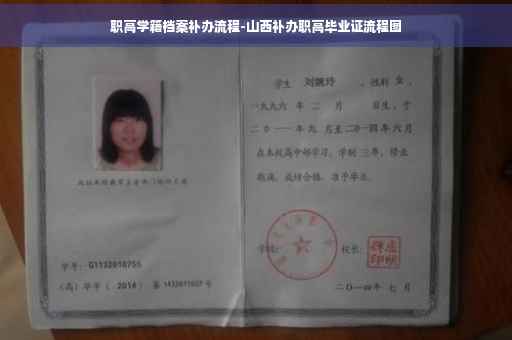 职高学籍档案补办流程-山西补办职高毕业证流程图
学生 刘婉玲 ，性别 女 ，
一九九六 年 二 月 日生，于
二〇一一年九 月至二〇一四年六月
在本校高中部学习，学制 三年，修业
期满，成绩合格，准予毕业。
学校： 校长：
学号：G1132010755
(高) 毕字 ( 2014 ) 第 1432011607 号
二〇一四年 七 月